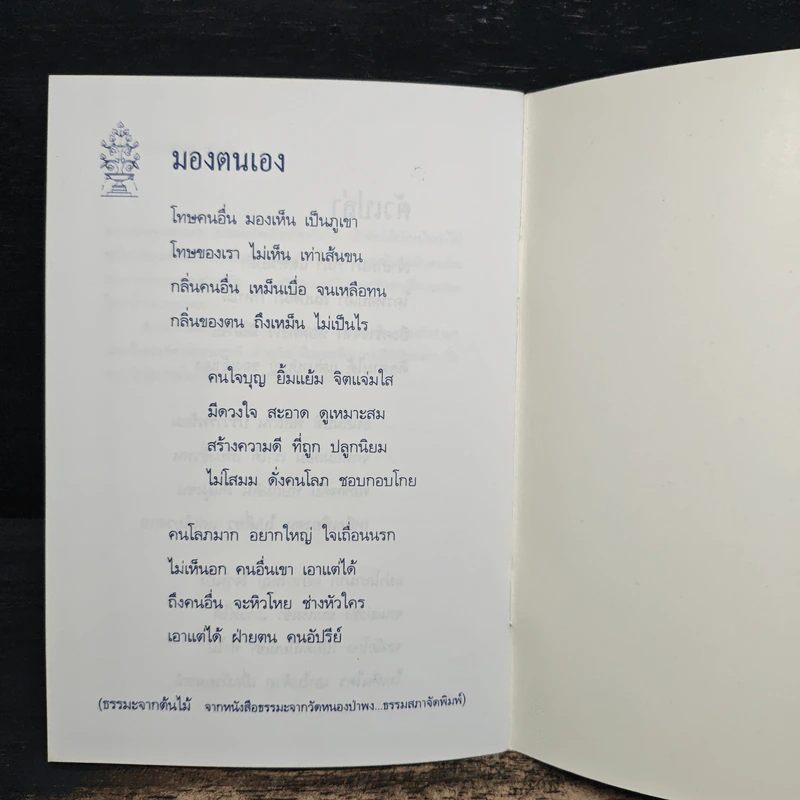 มองตนเอง
โทษคนอื่น มองเห็น เป็นภูเขา
โทษของเรา ไม่เห็น เท่าเส้นขน
กลิ่นคนอื่น เหม็นเบื่อ จนเหลือทน
กลิ่นของตน ถึงเหม็น ไม่เป็นไร
คนใจบุญ ยิ้มแย้ม จิตแจ่มใส
มีดวงใจ สะอาด ดูเหมาะสม
สร้างความดี ที่ถูก ปลูกนิยม
ไม่โสมม ดั่งคนโลภ ชอบกอบโกย
คนโลภมาก อยากใหญ่ ใจเถื่อนนรก
ไม่เห็นอก คนอื่นเขา เอาแต่ได้
ถึงคนอื่น จะหิวโหย ช่างหัวใคร
เอาแต่ได้ ฝ่ายตน คนอัปรีย์
(ธรรมะจากต้นไม้ จากหนังสือธรรมะจากวัดหนองป่าพง...ธรรมสภาจัดพิมพ์)